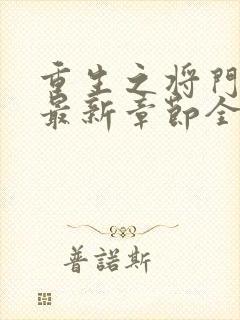 重生之将門
最新章節全
普諾斯